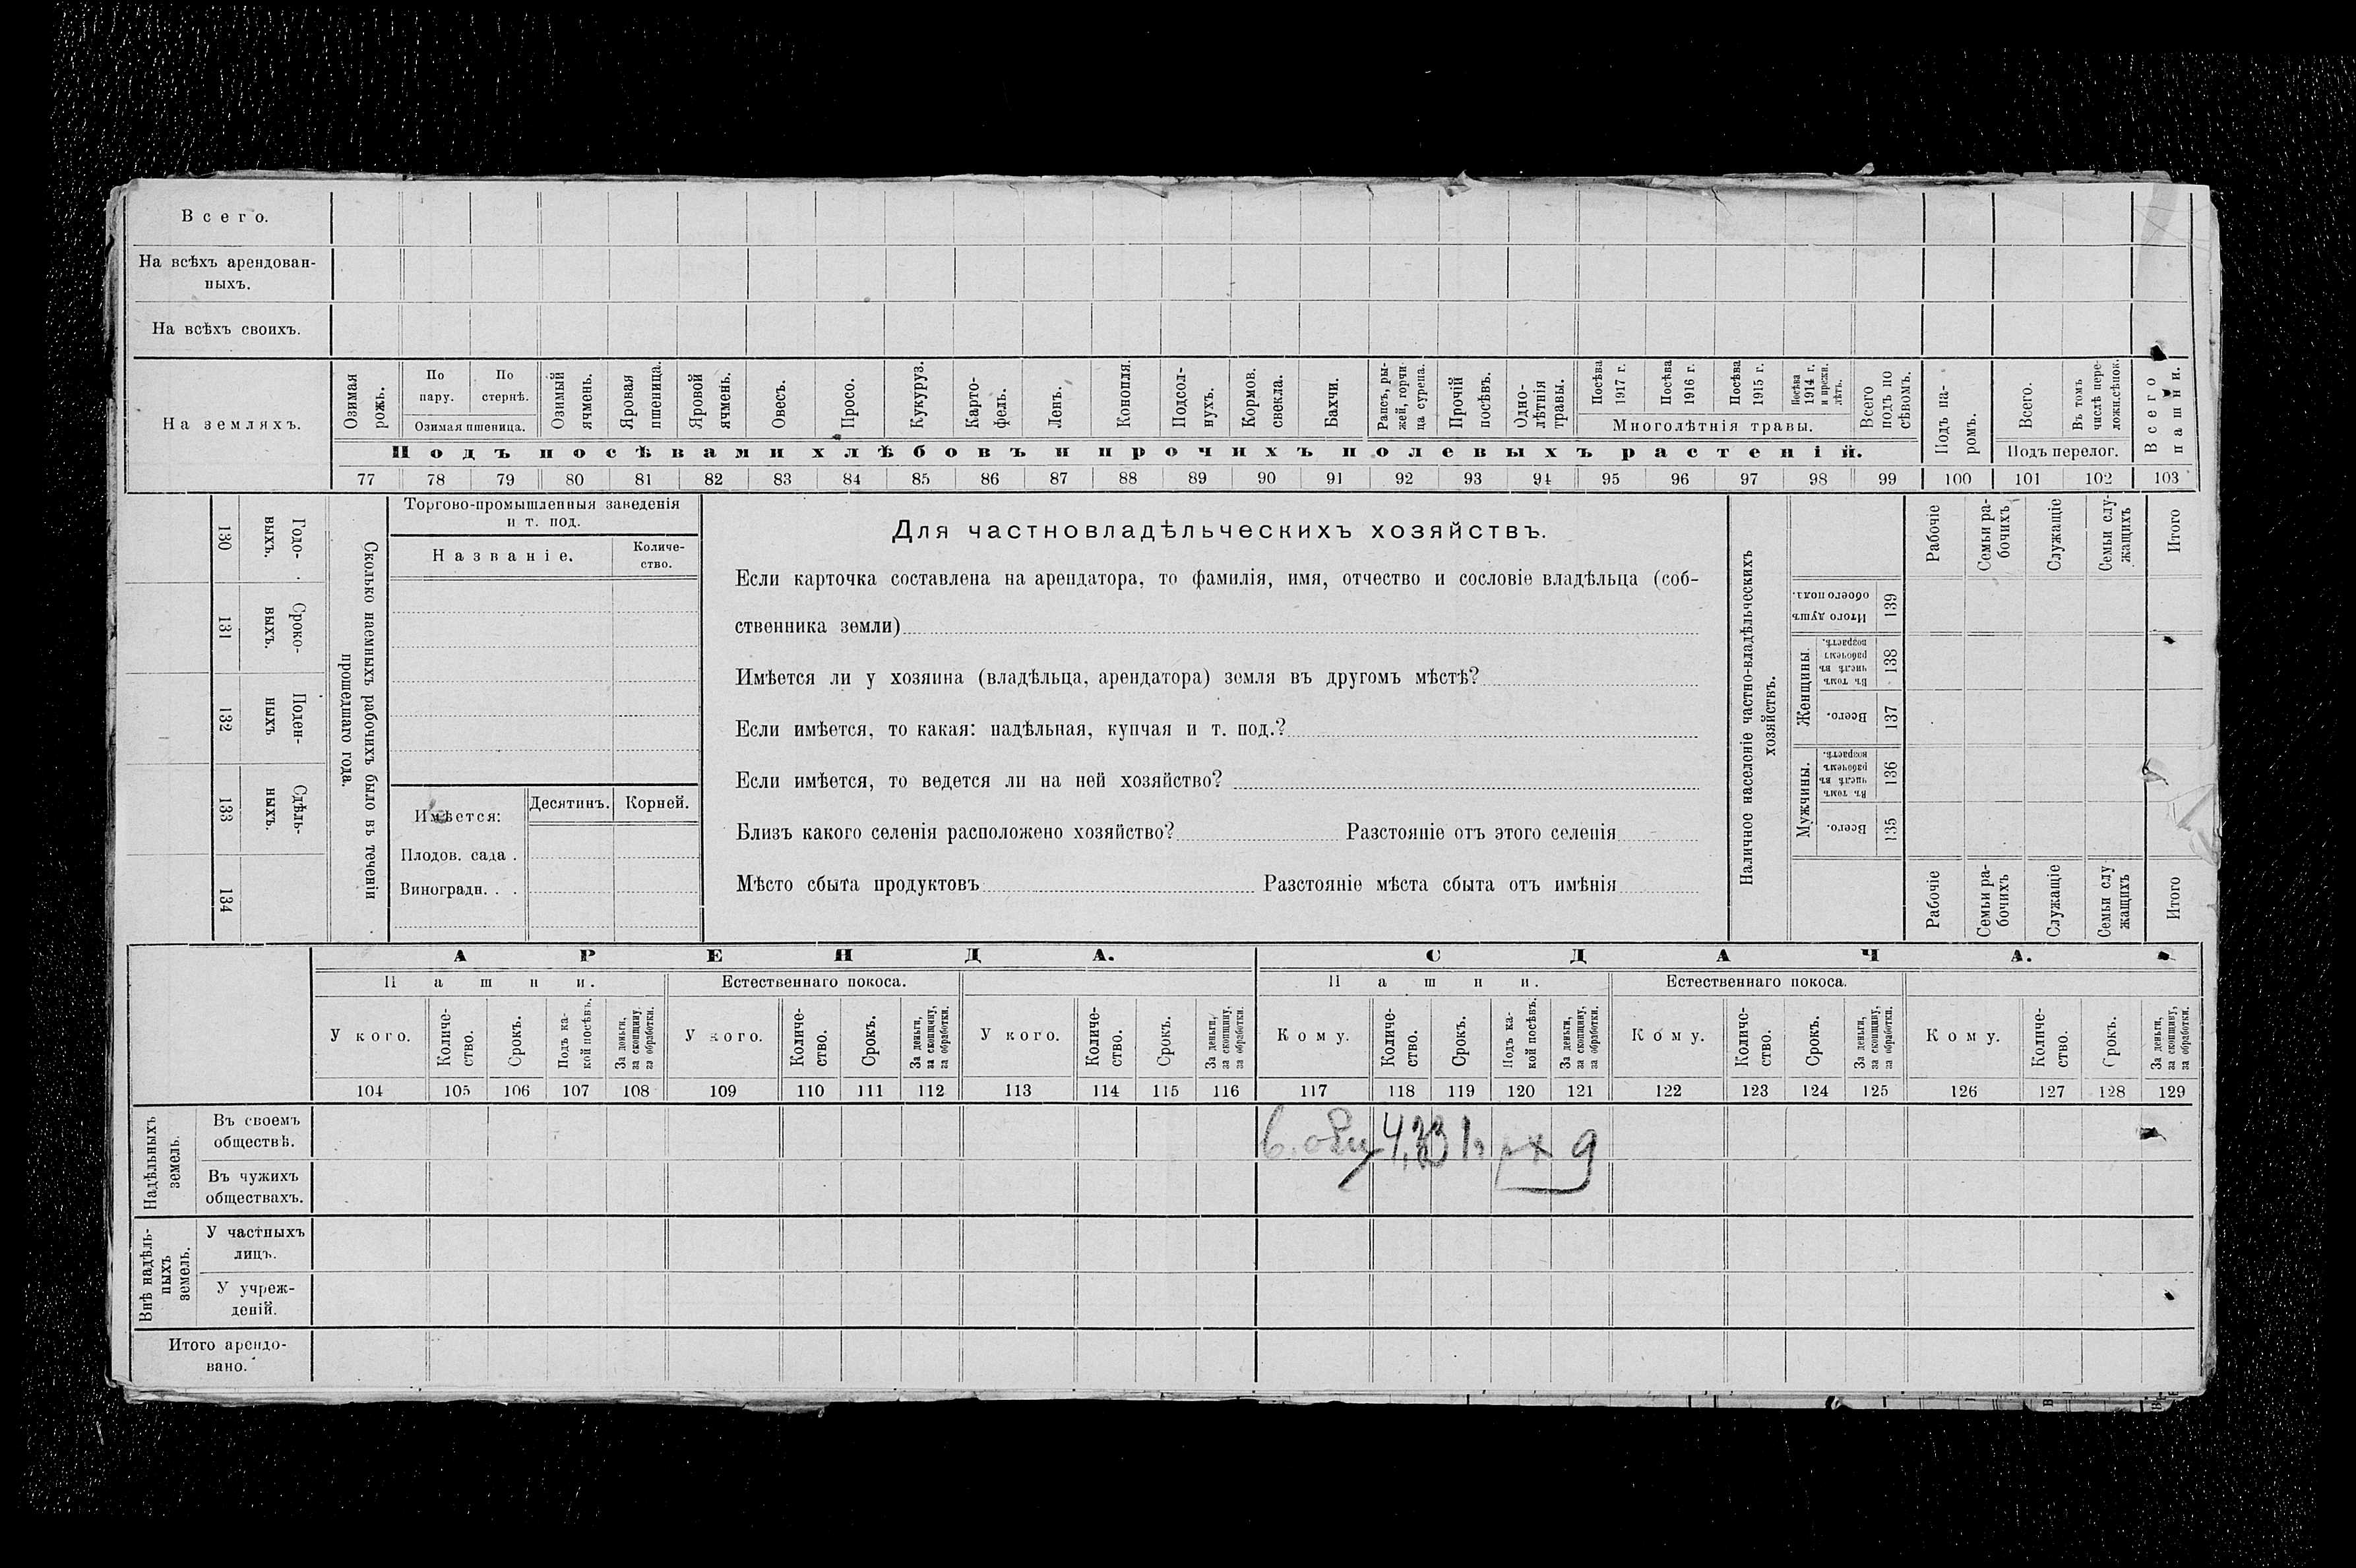 Всего.
На всѣхъ арендован-
ныхъ.
На всѣхъ своихъ.
На земляхъ.
Озимая рожь.
По пару.
По стернѣ.
Озимая пшеница.
Озимый ячмень.
Яровая пшеница.
Яровой ячмень.
Овесъ.
Просо.
Кукуруз.
Карто-
фель.
Ленъ.
Конопля.
Подсол-
нухъ.
Кормов. свекла.
Бахчи.
Рапсъ, ры-
жей, горчи
ца сурепа.
Прочій посѣвъ.
Одно-
лѣтнія
травы.
Посѣва 1917 г.
Посѣва 1916 г.
Посѣва 1915 г.
Посѣва 1914 г. и прежн. лѣтъ.
Многолѣтнія травы.
Всего подъ по
сѣвомъ.
Подъ посѣвами хлѣбовъ и прочихъ полевыхъ растеній.
Подъ па-
ромъ.
Всего.
Въ томъ числѣ пере-
ложн.сѣнок.
Подъ перелог.
Всего пашни.
77 78 79 80 81 82 83 84 85 86 87 88 89 90 91 92 93 94 95 96 97 98 99 100 101 102 103
130
Годо-
выхъ.
131
Сроко-
выхъ.
132
Поден-
ныхъ
133
Сдѣль-
ныхъ.
134
Сколько наемныхъ рабочихъ было въ теченіи
прошедшаго года.
Торгово-промышленныя заведенія
и т. под.
Названіе.
Количе-
ство.
Имѣется:
Десятинъ.
Корней.
Плодов. сада .
Виноградн. . .
Для частновладѣльческихъ хозяйствъ.
Если карточка составлена на арендатора, то фамилія, имя, отчество и сословіе владѣльца (соб-
ственника земли)
Имѣется ли у хозяина (владѣльца, арендатора) земля въ другомъ мѣстѣ?
Если имѣется, то какая: надѣльная, купчая и т. под.?
Если имѣется, то ведется ли на ней хозяйство?
Близъ какого селенія расположено хозяйство? Разстояніе отъ этого селенія
Мѣсто сбыта продуктовъ Разстояніе мѣста сбыта отъ имѣнія
Наличное населеніе частно-владѣльческихъ
хозяйствъ.
Рабочіе
Семьи ра-
бочихъ
Служащіе
Семьи слу-
жащихъ
Итого
Итого душъ
обоего пола.
139
Женщины.
Въ томъ числѣ въ рабочемъ возрастѣ.
138
Всего.
137
Мужчины.
Въ томъ числѣ въ рабочемъ возрастѣ.
136
Всего.
135
Рабочіе
Семьи ра-
бочихъ
Служащіе
Семьи слу
жащихъ
Итого
АРЕНДА.
СДАЧА.
Пашни.
Естественнаго покоса.
Пашни.
Естественнаго покоса.
У кого.
Количе-
ство.
Срокъ.
Подъ ка-
кой посѣвъ.
За деньги,
за скопщину,
за обработки.
У кого.
Количе-
ство.
Срокъ.
За деньги,
за скопщину,
за обработки.
У кого.
Количе-
ство.
Срокъ.
За деньги,
за скопщину,
за обработки.
Кому.
Количе-
ство.
Срокъ.
Подъ ка-
кой посѣвъ.
За деньги,
за скопщину,
за обработки.
Кому.
Количе-
ство.
Срокъ.
За деньги,
за скопщину,
за обработки.
Кому.
Количе-
ство.
Срокъ.
За деньги,
за скопщину,
за обработки.
104 105 106 107 108 109 110 111 112 113 114 115 116 117 118 119 120 121 122 123 124 125 126 127 128 129
Надѣльныхъ
земель.
Въ своемъ
обществѣ.
Въ чужихъ
обществахъ.
Внѣ надѣль-
ныхъ
земель.
У частныхъ
лицъ.
У учреж-
деній.
Итого арендо-
вано.